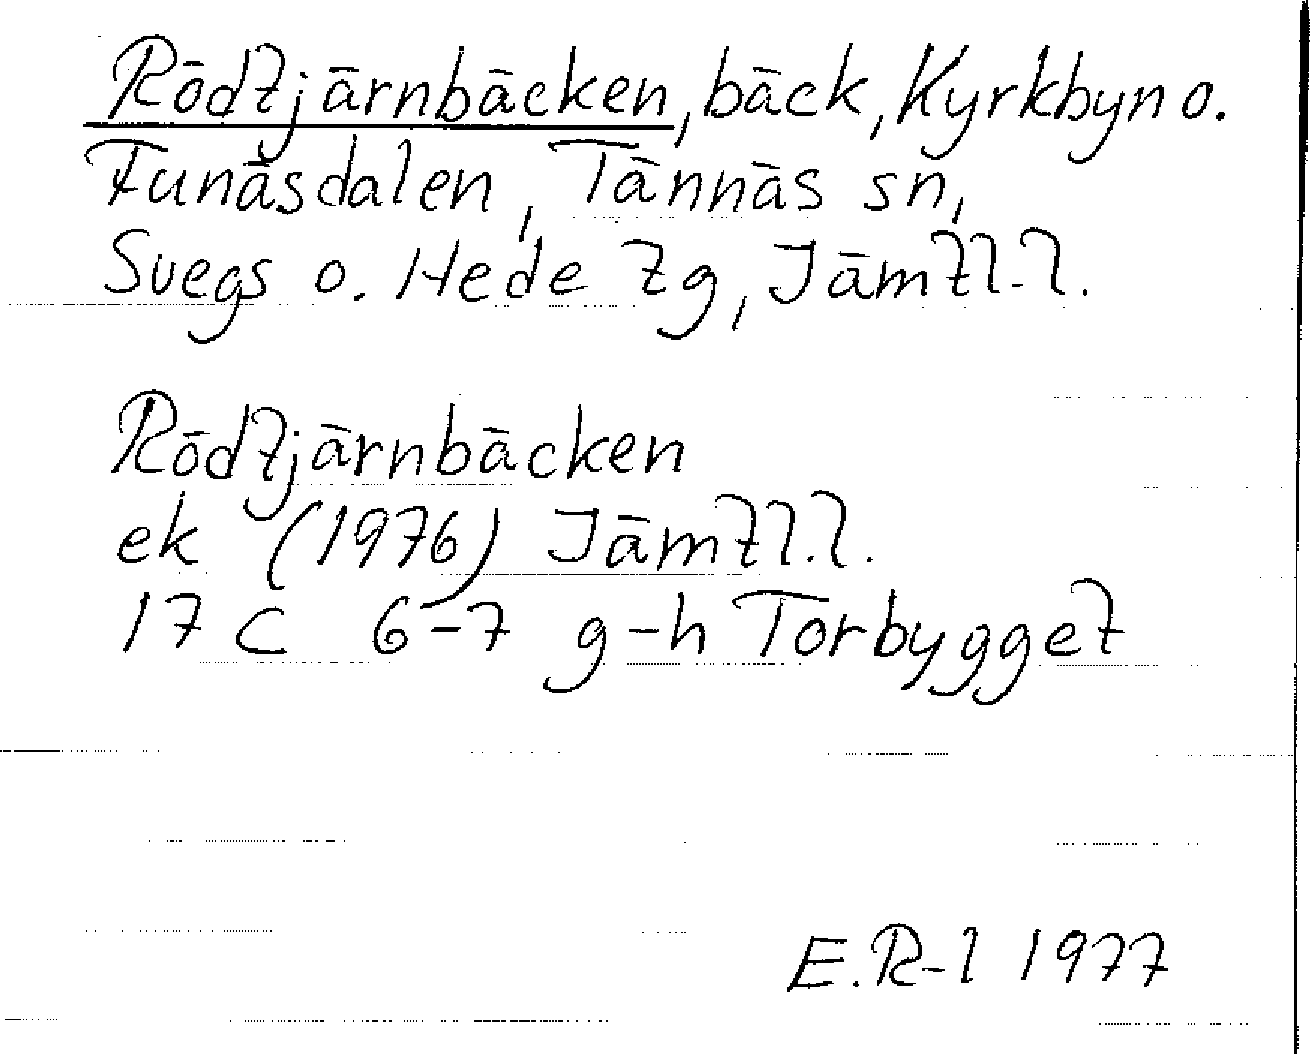 Rödtjärnbäcken, bäck, Kyrkbyn o.
Funäsdalen, Tännäs sn,
Svegs o. Hede tg, Jämtl.l.
Rödtjärnbäcken
ek (1976) Jämtl.l.
17 C 6-7 g-h Torbygget
E.R-l 1977